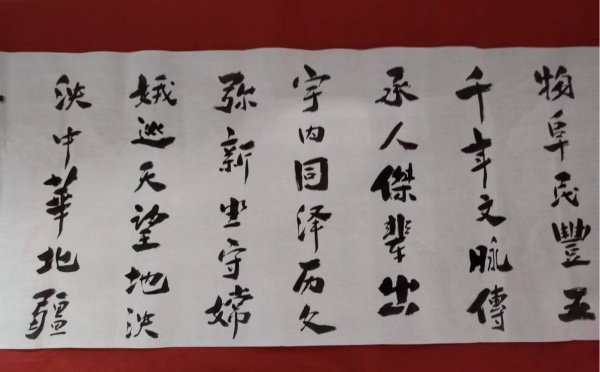 物阜民豐五
千年文脉傳
承人傑輩出
宇内同泽历久
弥新坐守嫦
娥巡天望地泱
泱中華北疆